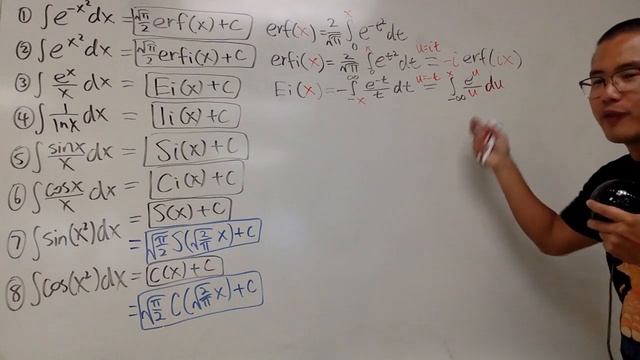 ① ∫e^{-x²}dx = √π/2 erf(x)+C
② ∫e^{x²}dx = √π/2 erfi(x)+C
③ ∫e^x/x dx = Ei(x)+C
④ ∫1/lnx dx = li(x)+C
⑤ ∫sinx/x dx = Si(x)+C
⑥ ∫cosx/x dx = Ci(x)+C
⑦ ∫sin(x²)dx = S(x)+C
= √(π/2) S(√(2/π) x)+C
⑧ ∫cos(x²)dx = C(x)+C
= √(π/2) C(√(2/π) x)+C
erf(x) = 2/√π ∫_0^x e^{-t²}dt
erfi(x) = 2/√π ∫_0^x e^{t²}dt u=it = -i erf(ix)
Ei(x) = -∫_{-x}^∞ e^{-t}/t dt u=-t = ∫_{-∞}^x e^u/u du